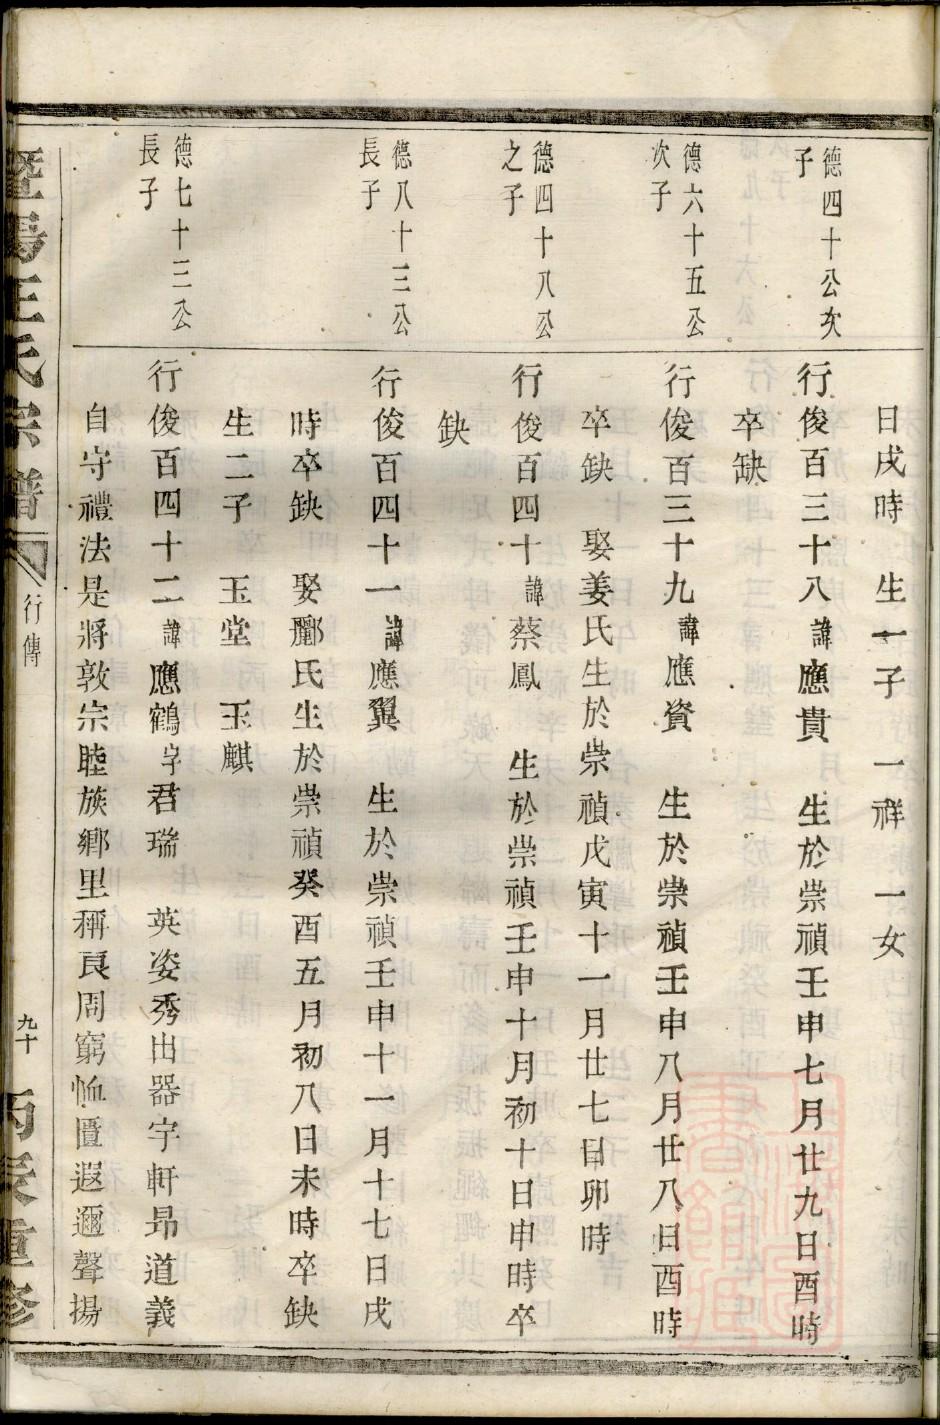 日戌時　生一子　一祥　一女
德四十公次
子
行俊百三十八諱應貴　生於崇禎壬申七月廿九日酉時
卒缺
德六十五公
次子
行俊百三十九諱應資　生於崇禎壬申八月廿八日酉時
卒缺　娶姜氏生於崇禎戊寅十一月廿七日卯時
德四十八公
之子
行俊百四十諱蔡鳳　生於崇禎壬申十月初十日申時卒
缺
德八十三公
長子
行俊百四十一諱應翼　生於崇禎壬申十一月十七日戌
時卒缺　娶酈氏生於崇禎癸酉五月初八日未時卒缺
生二子　玉堂　玉麒
德七十三公
長子
行俊百四十二諱應鶴字君瑞　英姿秀出器宇軒昂道義
自守禮法是將敦宗睦族鄉里稱良周窮恤匱遐邇聲揚
暨陽王氏宗譜
行傳
九十
丙辰重修